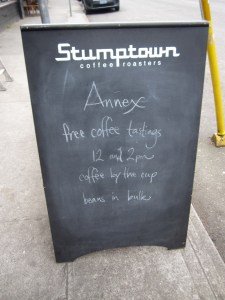 Stumptown
coffee roasters
Annex
free coffee tastings
12 and 2pm
coffee by the cup
beans in bulk